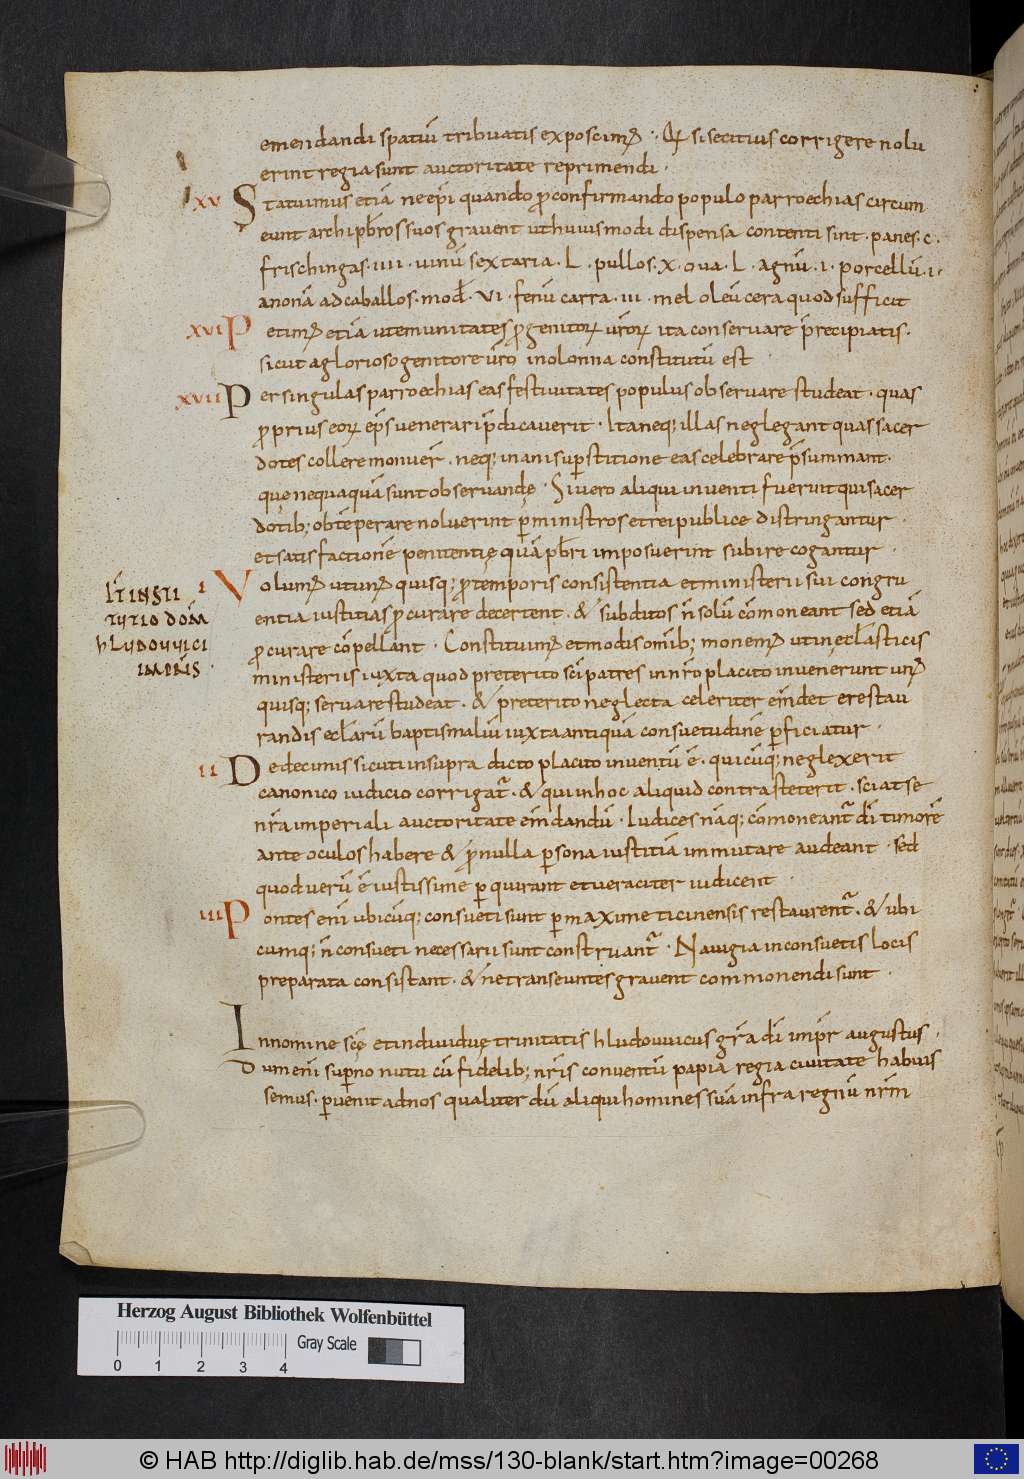 emendandi spatiū tribuatis exposcim᷒ · Qđ si secitius corrigere nolu
erint regia sunt auctoritate reprimendi ·
XV Statuimus etiā ne ep̄i quando ꝓ confirmando populo parroechias circum
eunt archip̄bros suos gravent ut huiusmodi dispensa contenti sint · panes · c ·
frischingas · IIII · uinū sextaria · L · pullos · X · oua · L · agnū · I · porcellū · I ·
anonā ad caballos · mod̄ · VI · fenū carra · III · mel oleū cera quod sufficit
XVI Petim᷒ etiā ut emunitates ꝓgenitoꝝ ur̄oꝝ ita conservare p̄recipiatis ·
sicut a glorioso genitore ur̄o in olonna constitutū est
XVII Per singulas parroechias eas festivitates populus observare studeat · quas
ꝓprius eoꝝ ep̄s venerari p̄dicaverit · Ita neq; illas neglegant quas sacer
dotes collere monuer̄ · neq; inani suꝑstitione eas celebrare p̄summant ·
que nequaquā sunt observandę · Si uero aliqui inventi fuerint qui sacer
dotib; obtēperare noluerint ꝑ ministros et rei publice distringantur ·
et satisfactionē penitentię quā p̄bri imposuerint subire cogantur ·
It̄ INSTI
TUTIO DOM̄
HLUDOVVICI
IMP̄RIS ·
I Volum᷒ ut un᷒ quisq; ꝓ temporis consistentia et ministerii sui congru
entia iustitias ꝓcurare decertent · & subditos n̄ solū cōmoneant sed etiā
ꝓcurare cōpellant · Constituim᷒ et modis omīb; monem᷒ ut in eccl̄asticis
ministeriis iuxta quod preterito sc̄i patres in nr̄o placito invenerunt un᷒
quisq; servare studeat · & preterito neglecta celeriter em̄det e restau
randis eccl̄arū baptismaliū iuxta antiquā consuetudinē ꝑficiatur ·
II De decimis sicuti in supra dicto placito inventū ē · quicūq; neglexerit
canonico iudicio corrigat᷑ · & qui in hoc aliquid contra steterit · sciat se
nr̄a imperiali auctoritate em̄dandū · Iudices nāq; cōmoneant᷑ dī timorē
ante oculos habere & p̄ nulla ꝑsona iustitiā immutare audeant · sed
quod verū ē iustissime ꝑquirant et veraciter iudicent ·
III Pontes enī ubicūq; consueti sunt ꝑ maxime ticinensis restaurent᷑ · & ubi
cumq; n̄ consueti necessarii sunt construant᷑ · Navigia in consuetis locis
preparata consistant · & ne transeuntes gravent commonendi sunt ·
In nomine sc̄ę et individuę trinitatis hludouuicus gr̄a dī imp̄r augustus ·
Dum enī suꝑno nutu cū fidelib; nr̄is conventū papia regia civitate habuis
semus · ꝑvenit ad nos qualiter dū aliqui homines suā infra regnū nr̄m
Herzog August Bibliothek Wolfenbüttel
0 1 2 3 4 Gray Scale
© HAB http://diglib.hab.de/mss/130-blank/start.htm?image=00268